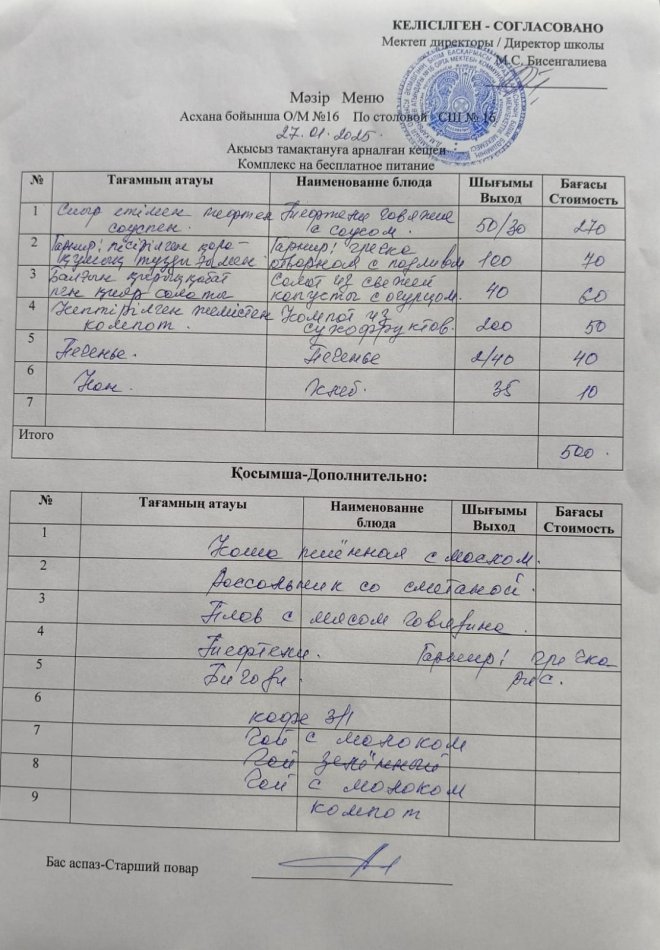 КЕЛІСІЛГЕН - СОГЛАСОВАНО
Мектеп директоры / Директор школы
М.С. Бисенгалиева
Мәзір Меню
Асхана бойынша О/М №16 По столовой СШ № 16
27.01.2025.
Ақысыз тамақтануға арналған кешен
Комплекс на бесплатное питание
№ Тағамның атауы Наименование блюда Шығымы Выход Бағасы Стоимость
1 Сиыр етімен тефтели Тефтели говяжие
соуспен. с соусом. 50/30 270
2 Гарнир: пісірілген қара- Гарнир: гречка
отворная с подливом 100 70
3 Балғын қырыққабат Салат из свежей
пен қияр салаты капусты с огурцом. 40 60
4 Кептірілген жемістен Компот из
компот. сухофруктов. 200 50
5 Печенье. Печенье 2/40 40
6 Нан. Хлеб. 35 10
7
Итого 500.
Қосымша-Дополнительно:
№ Тағамның атауы Наименование блюда Шығымы Выход Бағасы Стоимость
1 Каша пшённая с маслом.
2 Рассольник со сметаной.
3 Плов с мясом говядина.
4 Тефтели. Гарнир: гречка
5 рис.
6 кофе 3/1
7 Чай с молоком
8 Чай зелённый
Чай с молоком
9 компот
Бас аспаз-Старший повар